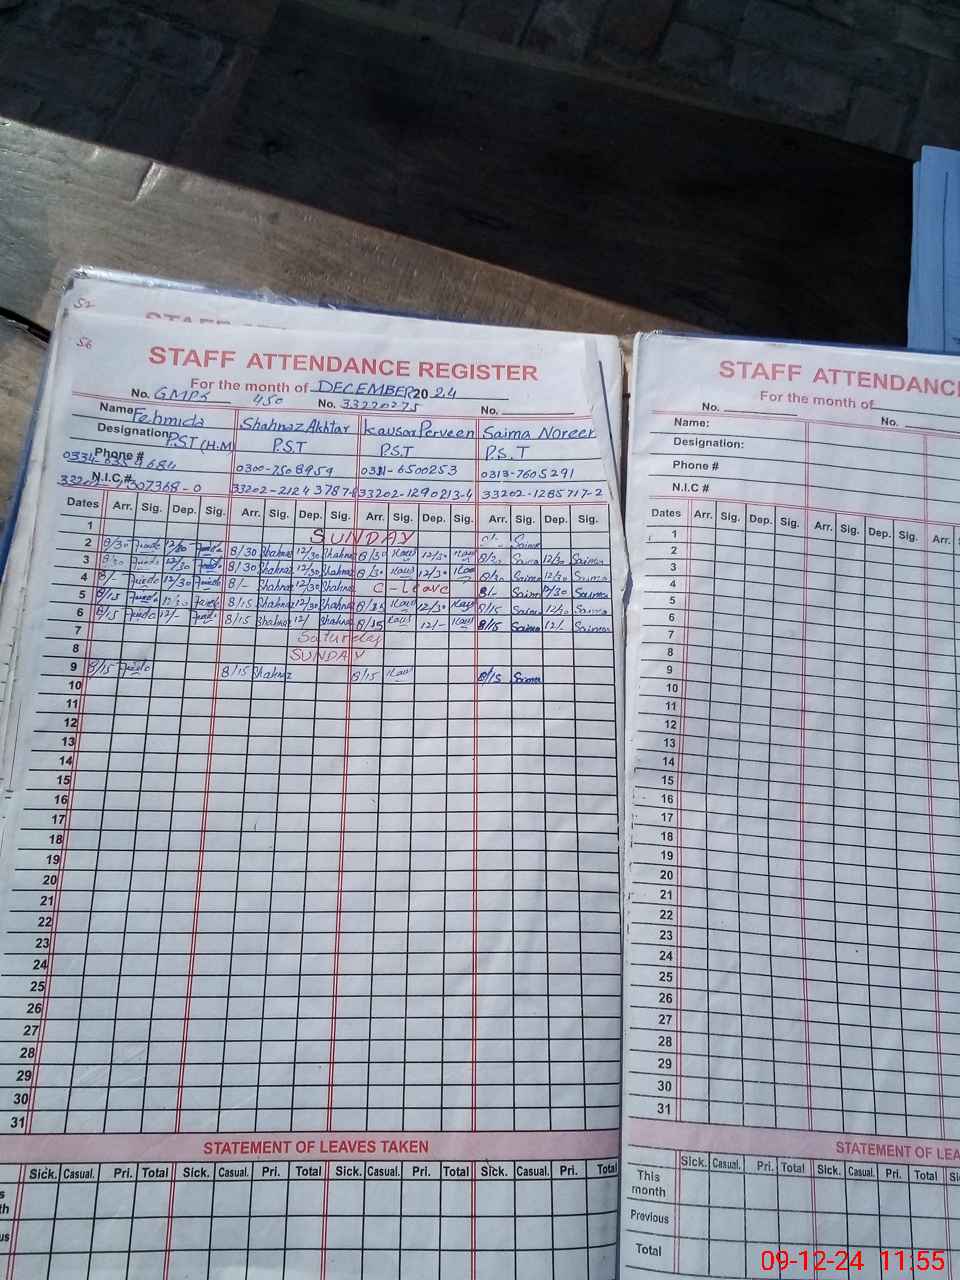 52
56
STAFF ATTENDANCE REGISTER
For the month of DECEMBER 2024
No. GMPS 450 No. 33220275 No.
Name Fehmida Shahnaz Akhtar Kausar Perveen Saima Noreen
Designation P.S.T (H.M) P.S.T P.S.T P.S.T
Phone # 0300-7508959 0311-6500253 0313-7605291
N.I.C # 33202-1290213-4 33202-1285717-2
Dates Arr. Sig. Dep. Sig. Arr. Sig. Dep. Sig. Arr. Sig. Dep. Sig. Arr. Sig. Dep. Sig.
1 SUNDAY
2 8/30 12/30 8/30 Shahnaz 12/30 Shahnaz 8/30 12/30 8/30 Saima 12/30 Saima
3 8/30 12/30 8/30 Shahnaz 12/30 Shahnaz 8/30 12/30 8/30 Saima 12/30 Saima
4 8/- 12/30 8/- Shahnaz 12/30 Shahnaz C-Leave 8/- Saima 12/30 Saima
5 8/15 12/30 8/15 Shahnaz 12/30 Shahnaz 8/15 12/30 8/15 Saima 12/30 Saima
6 8/15 12/- 8/15 Shahnaz 12/ Shahnaz 8/15 12/- 8/15 Saima 12/- Saima
7 Saturday
8 SUNDAY
9 8/15 8/15 Shahnaz 8/15 8/15 Saima
10
11
12
13
14
15
16
17
18
19
20
21
22
23
24
25
26
27
28
29
30
31
STATEMENT OF LEAVES TAKEN
Sick. Casual. Pri. Total Sick. Casual. Pri. Total Sick. Casual. Pri. Total Sick. Casual. Pri. Total
STAFF ATTENDANC
For the month of
No. No.
Name:
Designation:
Phone #
N.I.C #
Dates Arr. Sig. Dep. Sig. Arr. Sig. Dep. Sig. Arr. S
1
2
3
4
5
6
7
8
9
10
11
12
13
14
15
16
17
18
19
20
21
22
23
24
25
26
27
28
29
30
31
STATEMENT OF LEA
Sick. Casual. Pri. Total Sick. Casual. Pri. Total Si
This month
Previous
Total
09-12-24 11:55